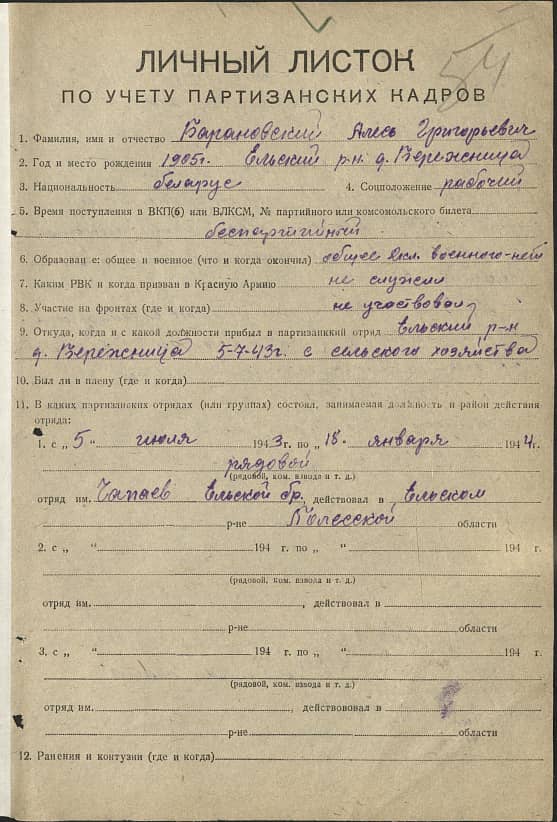 54
ЛИЧНЫЙ ЛИСТОК
ПО УЧЕТУ ПАРТИЗАНСКИХ КАДРОВ
1. Фамилия, имя и отчество Барановский Алесь Григорьевич
2. Год и место рождения 1905г. Ельский р-н д. Вережница
3. Национальность беларус 4. Соцположение рабочий
5. Время поступления в ВКП(б) или ВЛКСМ, № партийного или комсомольского билета
беспартийный
6. Образован е: общее и военное (что и когда окончил) общее 2кл. военного-нет
7. Каким РВК и когда призван в Красную Армию не служил
8. Участие на фронтах (где и когда) не участвовал
9. Откуда, когда и с какой должности прибыл в партизанский отряд Ельский р-н
д. Вережница 5-7-43г. с сельского хозяйства
10. Был ли в плену (где и когда)
11. В каких партизанских отрядах (или группах) состоял, занимаемая должность и район действия
отряда:
1. с „ 5 “ июля 1943г. по „ 18. января 1944.
рядовой
(рядовой, ком. взвода и т. д.)
отряд им. Чапаев Ельской бр., действовал в Ельском
р-не Полесской области
2. с „ “ 194 г. по „ “ 194 г.
(рядовой, ком. взвода и т. д.)
отряд им. , действовал в
р-не области
3. с „ “ 194 г. по „ “ 194 г.
(рядовой, ком. взвода и т. д.)
отряд им. , действововал в
р-не области
12. Ранения и контузии (где и когда)